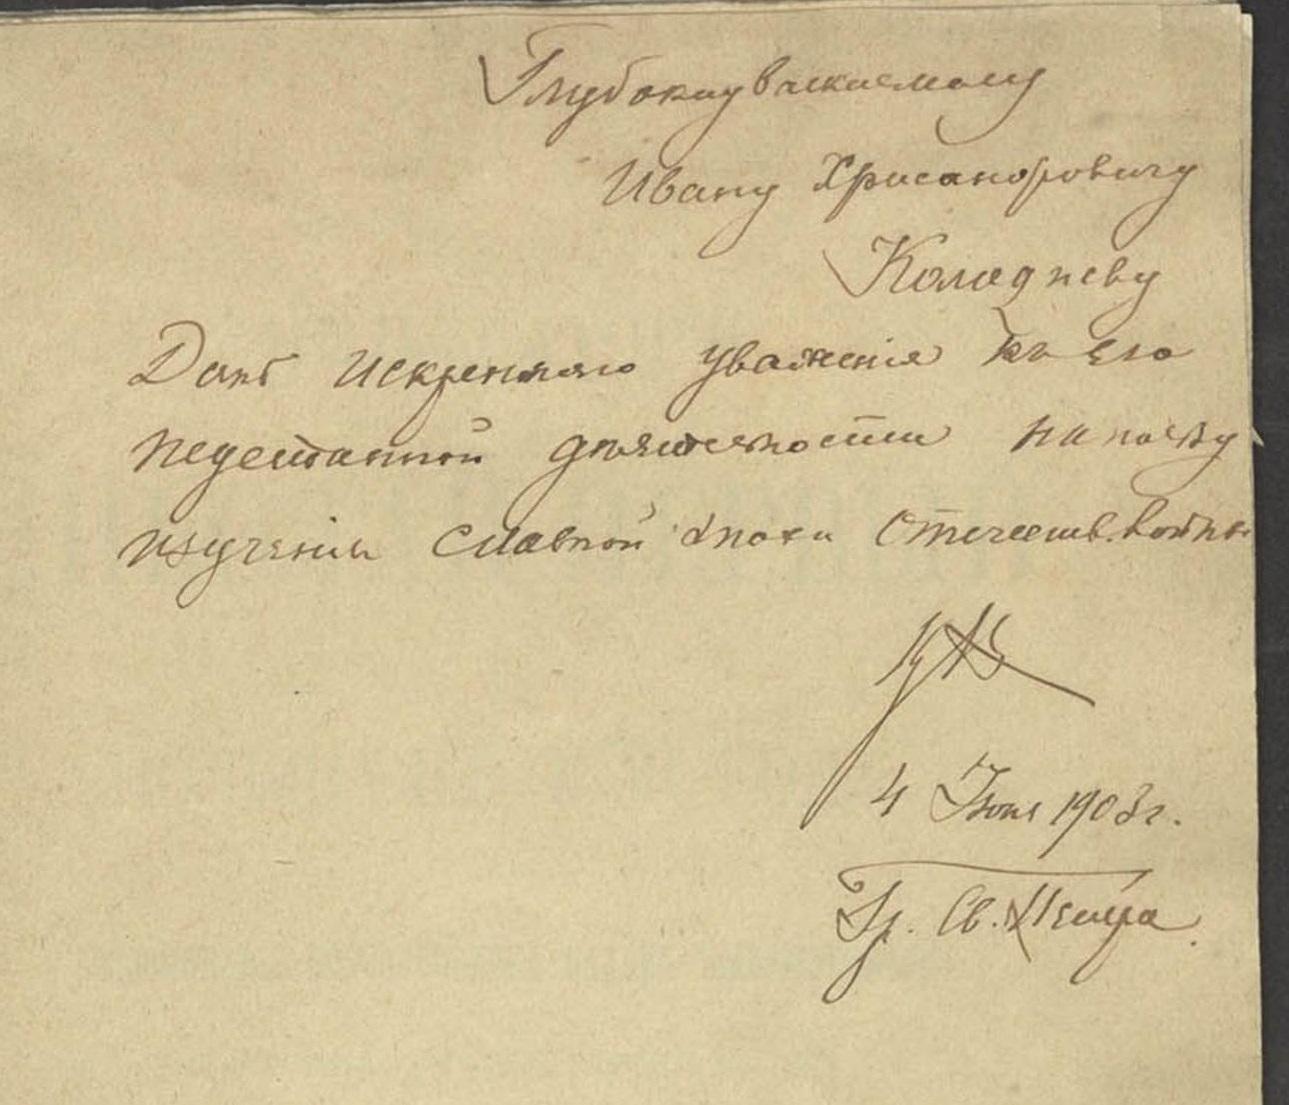 Глубокоуважаемому
Ивану Хрисанфовичу
Колодѣеву
Дань искренняго уваженія къ его
неустанной дѣятельности на пользу
изученія славной эпохи Отечеств. войны
4 Іюня 1903 г.
Гр. Св. Петра